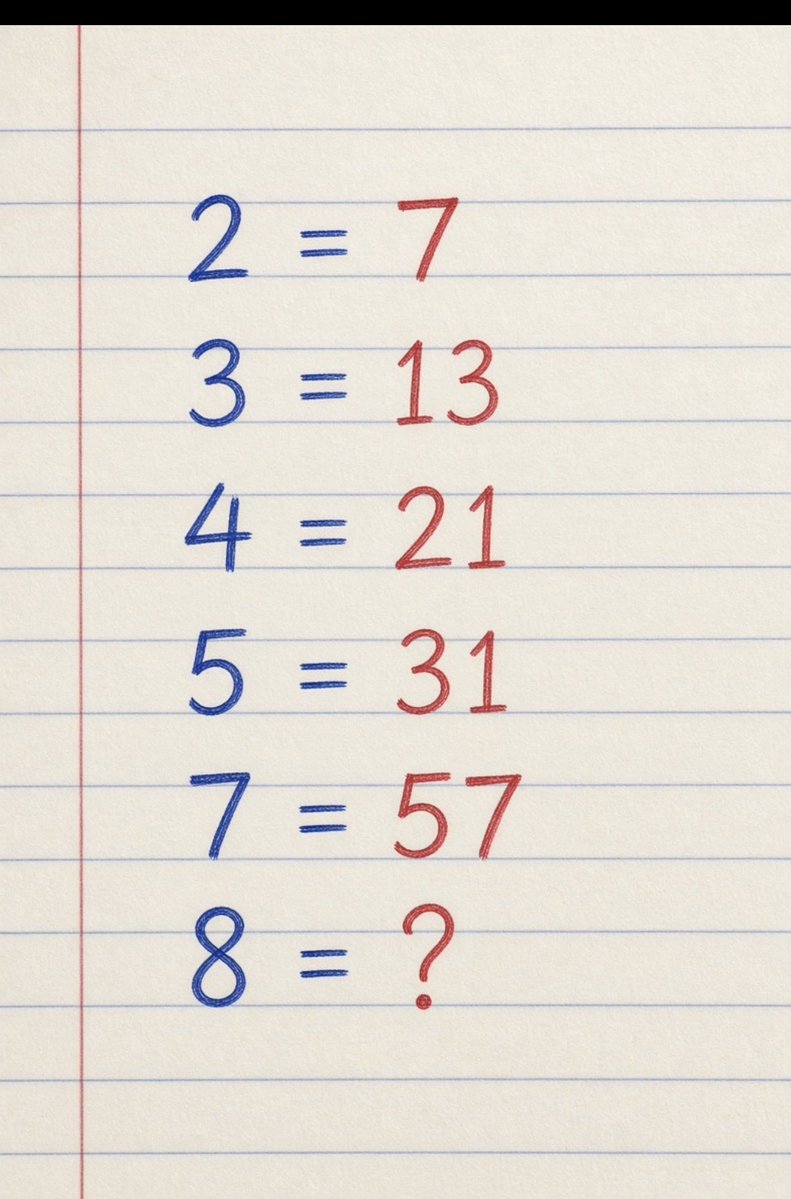 2 = 7
3 = 13
4 = 21
5 = 31
7 = 57
8 = ?